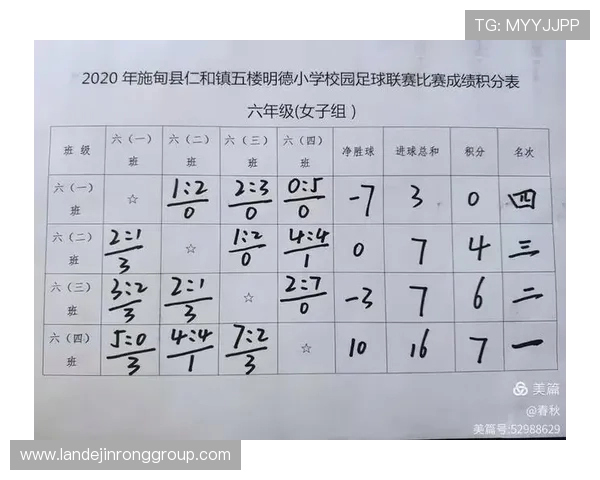 TG: MYYJJPP
2020 年施甸县仁和镇五楼明德小学校园足球联赛比赛成绩积分表
六年级(女子组)
班 级 六（一）班 六（二）班 六（三）班 六（四）班 净胜球 进球总和 积分 名次
六（一）班 ☆ 1:2/0 2:3/0 0:5/0 -7 3 0 四
六（二）班 2:1/3 ☆ 1:2/0 4:4/1 0 7 4 三
六（三）班 3:2/3 2:1/3 ☆ 2:7/0 -3 7 6 二
六（四）班 5:0/3 4:4/1 7:2/3 ☆ 10 16 7 一
美篇
@春秋
美篇号:52988629
www.landejinronggroup.com